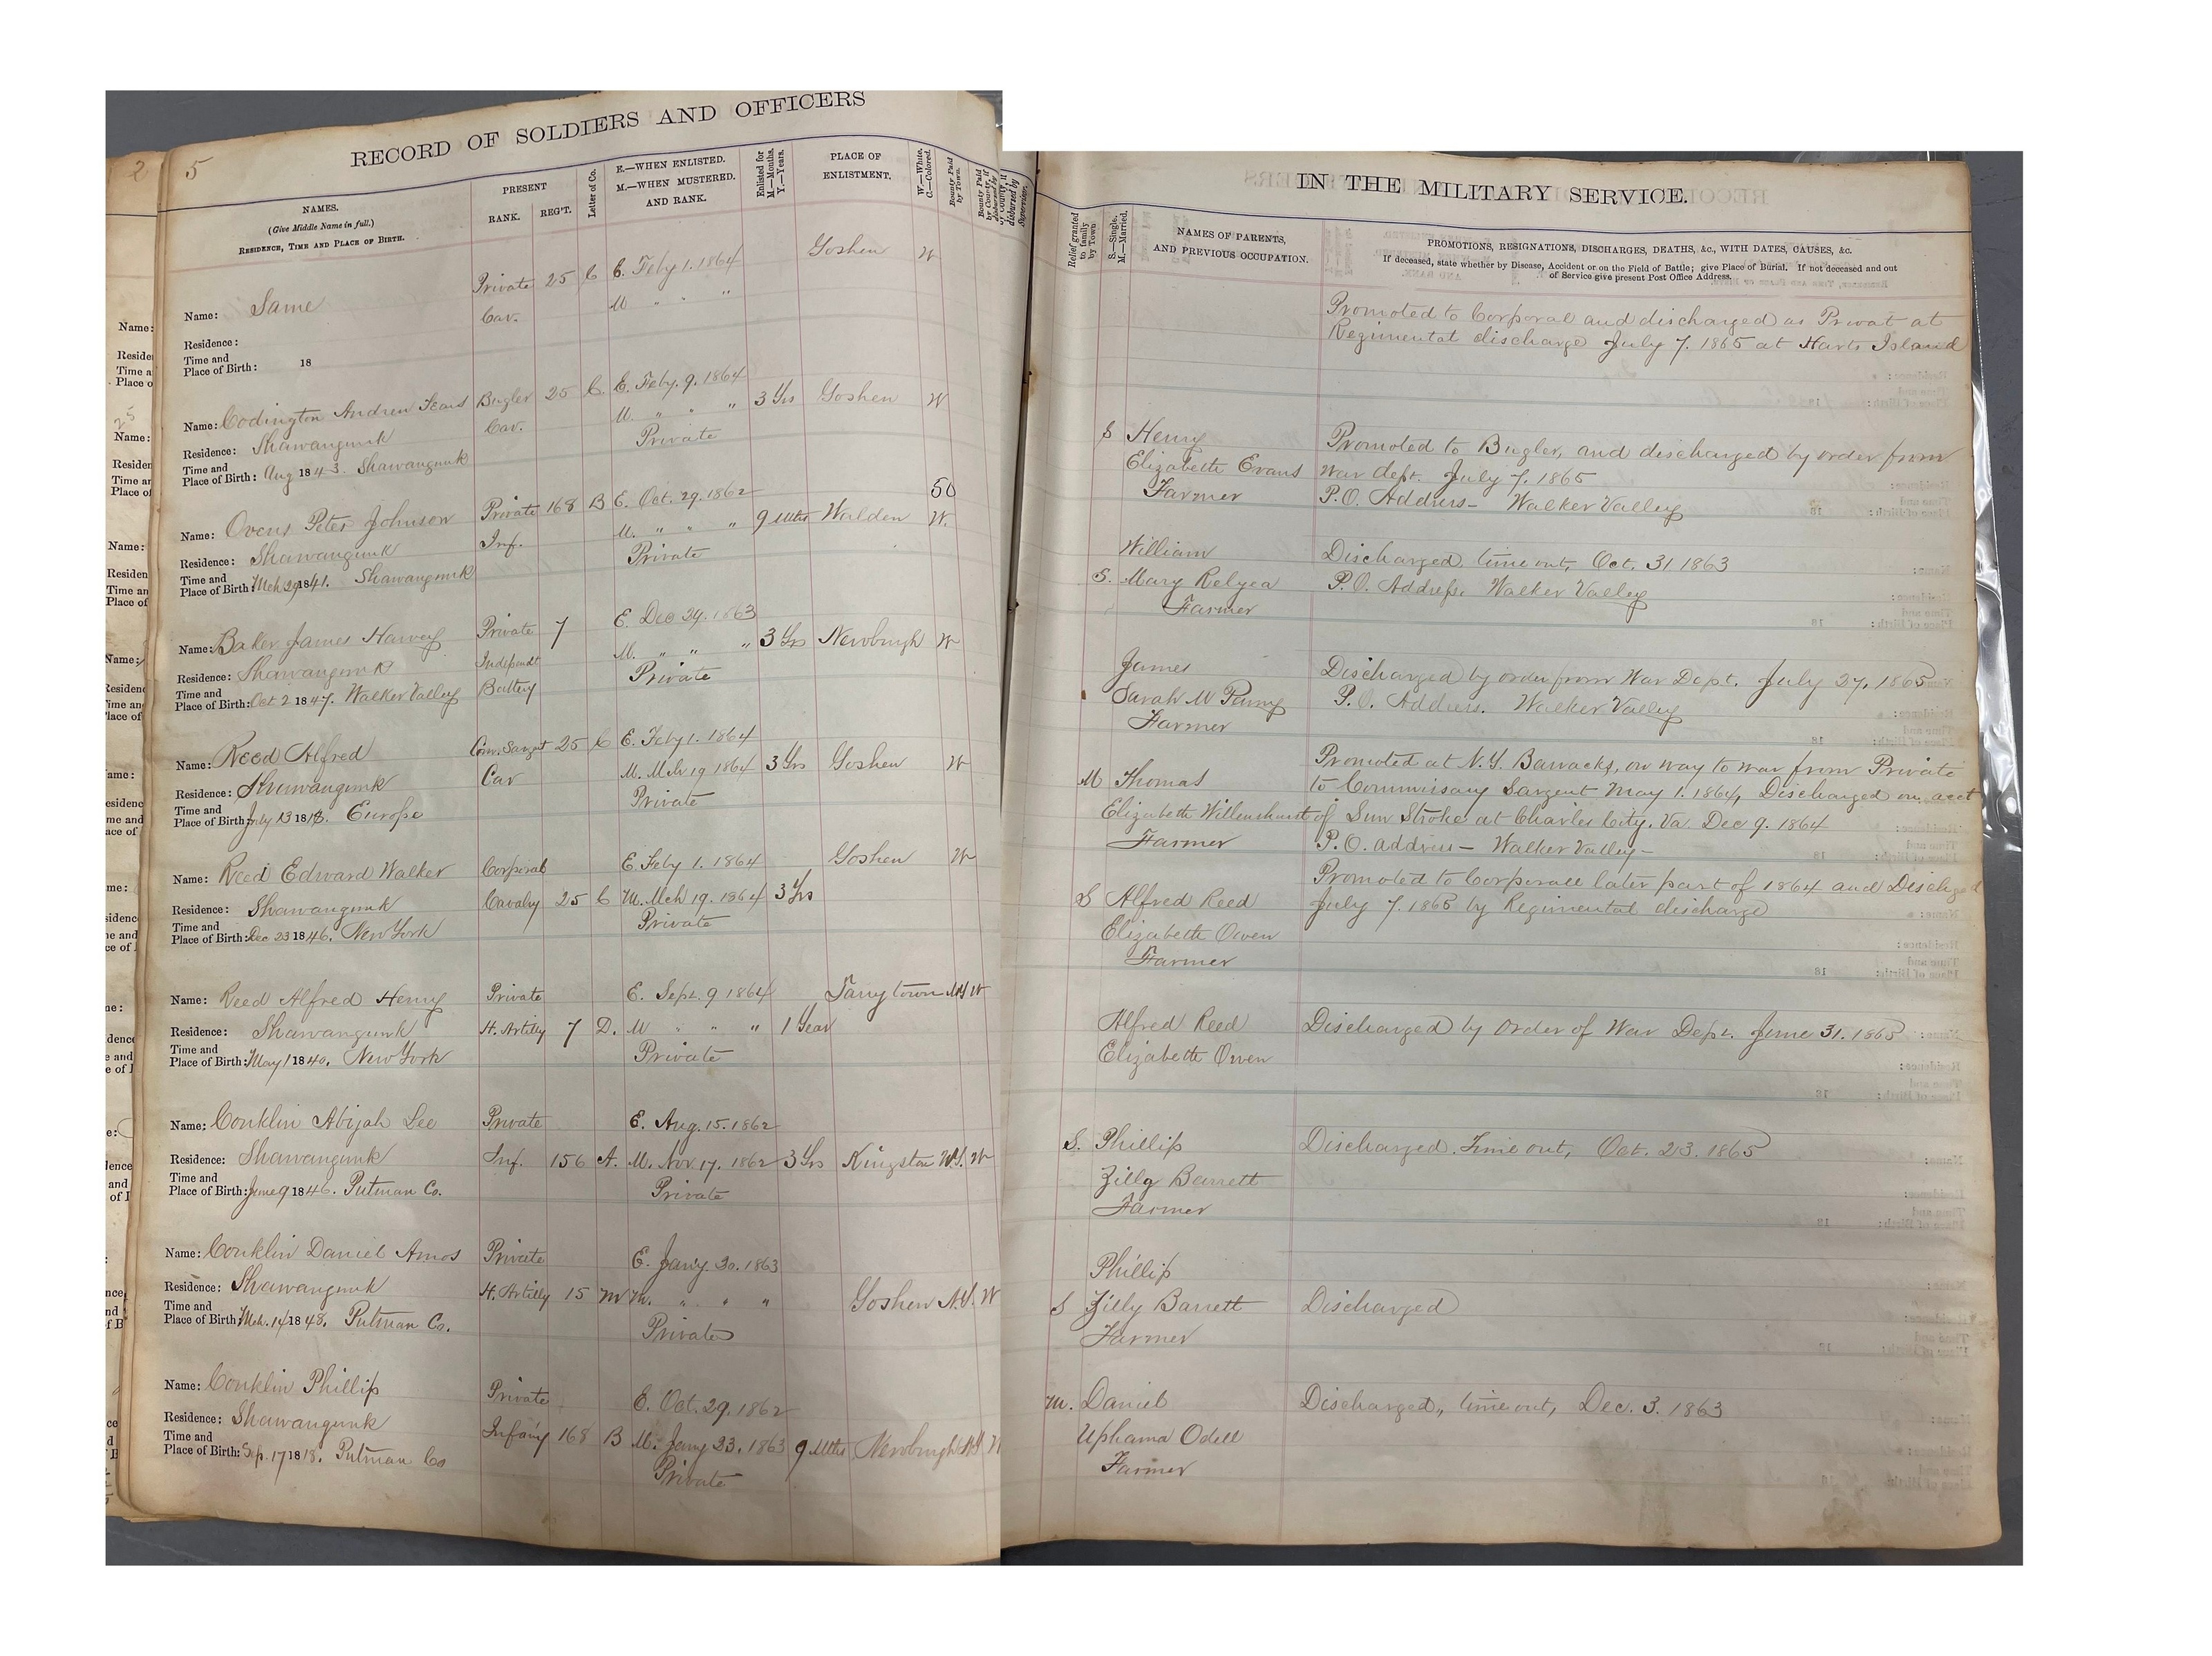 2
5
RECORD OF SOLDIERS AND OFFICERS
NAMES.
(Give Middle Name in full.)
RESIDENCE, TIME AND PLACE OF BIRTH.
PRESENT
RANK. REG'T.
Letter of Co.
E.—WHEN ENLISTED.
M.—WHEN MUSTERED.
AND RANK.
Enlisted for
M.—Months.
Y.—Years.
PLACE OF
ENLISTMENT.
W.—White.
C.—Colored.
Bounty Paid
by Town.
Bounty Paid
by County, if
disbursed by
Supervisor.
Name: Same
Private 25 C E. Feby 1. 1864 Goshen W
Cav. M " " "
Residence:
Time and
Place of Birth: 18
Name: Codington Andrew Bugler 25 C. E. Feby. 9. 1864
Cav. M. " " " 3 Yrs Goshen W
Residence: Shawangunk Private
Time and
Place of Birth: Aug 1843. Shawangunk
Name: Ovens Peter Johnson Private 168 B E. Oct. 29. 1862 50
Inf. M. " " " 9 Mths Walden W.
Residence: Shawangunk Private
Time and
Place of Birth: Mch 29 1841. Shawangunk
Name: Baker James Harvey Private 7 E. Dec 24. 1863
Independt M. " " " 3 Yrs Newburgh W
Residence: Shawangunk Battery Private
Time and
Place of Birth: Oct 2 1847. Walker Valley
Name: Reed Alfred Com. Sargnt 25 C E. Feby 1. 1864
Cav M. Mch 19 1864 3 Yrs Goshen W
Residence: Shawangunk Private
Time and
Place of Birth: July 13 18 Europe
Name: Reed Edward Walker Corporal E. Feby 1. 1864 Goshen W
Residence: Shawangunk Cavalry 25 C M. Mch 19. 1864 3 Yrs
Private
Time and
Place of Birth: Dec 23 1846. New York
Name: Reed Alfred Henry Private E. Sept. 9 1864 Tarrytown NY W
Residence: Shawangunk H. Artilly 7 D. M " " " 1 Year
Private
Time and
Place of Birth: May 1 1840. New York
Name: Conklin Abijah Lee Private E. Aug. 15. 1862
Residence: Shawangunk Inf. 156 A. M. Nov. 17. 1862 3 Yrs Kingston N.Y. W
Private
Time and
Place of Birth: June 9 1846. Putman Co.
Name: Conklin Daniel Amos Private E. Jan'y. 20. 1863
Residence: Shawangunk H. Artilly 15 M M. " " " Goshen N.Y. W
Private
Time and
Place of Birth: Mch. 14 1848. Putman Co.
Name: Conklin Phillip Private E. Oct. 29. 1862
Residence: Shawangunk Infany 168 B M. Jany 23. 1863 9 Mths Newburgh NY W
Private
Time and
Place of Birth: Sep. 17 1818. Putman Co
IN THE MILITARY SERVICE.
Relief granted
to family
by Town
S.—Single.
M.—Married.
NAMES OF PARENTS,
AND PREVIOUS OCCUPATION.
PROMOTIONS, RESIGNATIONS, DISCHARGES, DEATHS, &c., WITH DATES, CAUSES, &c.
If deceased, state whether by Disease, Accident or on the Field of Battle; give Place of Burial. If not deceased and out
of Service give present Post Office Address.
Promoted to Corporal and discharged as Privat at
Regimental discharge July 7. 1865 at Harts Island
S Henry Promoted to Bugler, and discharged by order from
Elizabeth Evans War dept. July 7. 1865
Farmer P.O. Address- Walker Valley
William Discharged time out, Oct. 31 1863
S. Mary Relyea P.O. Address. Walker Valley
Farmer
James Discharged by order from War Dept. July 27. 1865
Sarah M Penny P.O. Address. Walker Valley
Farmer
Promoted at N.Y. Barracks, on way to war from Private
M Thomas to Commissary Sargent May 1. 1864, Discharged on acct
Elizabeth of Sun Stroke at Charles City. Va. Dec 9. 1864
Farmer P.O. address - Walker Valley -
Promoted to Corporall later part of 1864 and Discharged
S Alfred Reed July 7. 1865 by Regimental discharge
Elizabeth Owen
Farmer
Alfred Reed Discharged by Order of War Dept. June 31. 1865
Elizabeth Owen
S. Phillip Discharged. Time out, Oct. 23. 1865
Zilly Barrett
Farmer
Phillip
S Zilly Barrett Discharged
Farmer
M. Daniel Discharged, time out, Dec. 3. 1863
Uphama Odell
Farmer